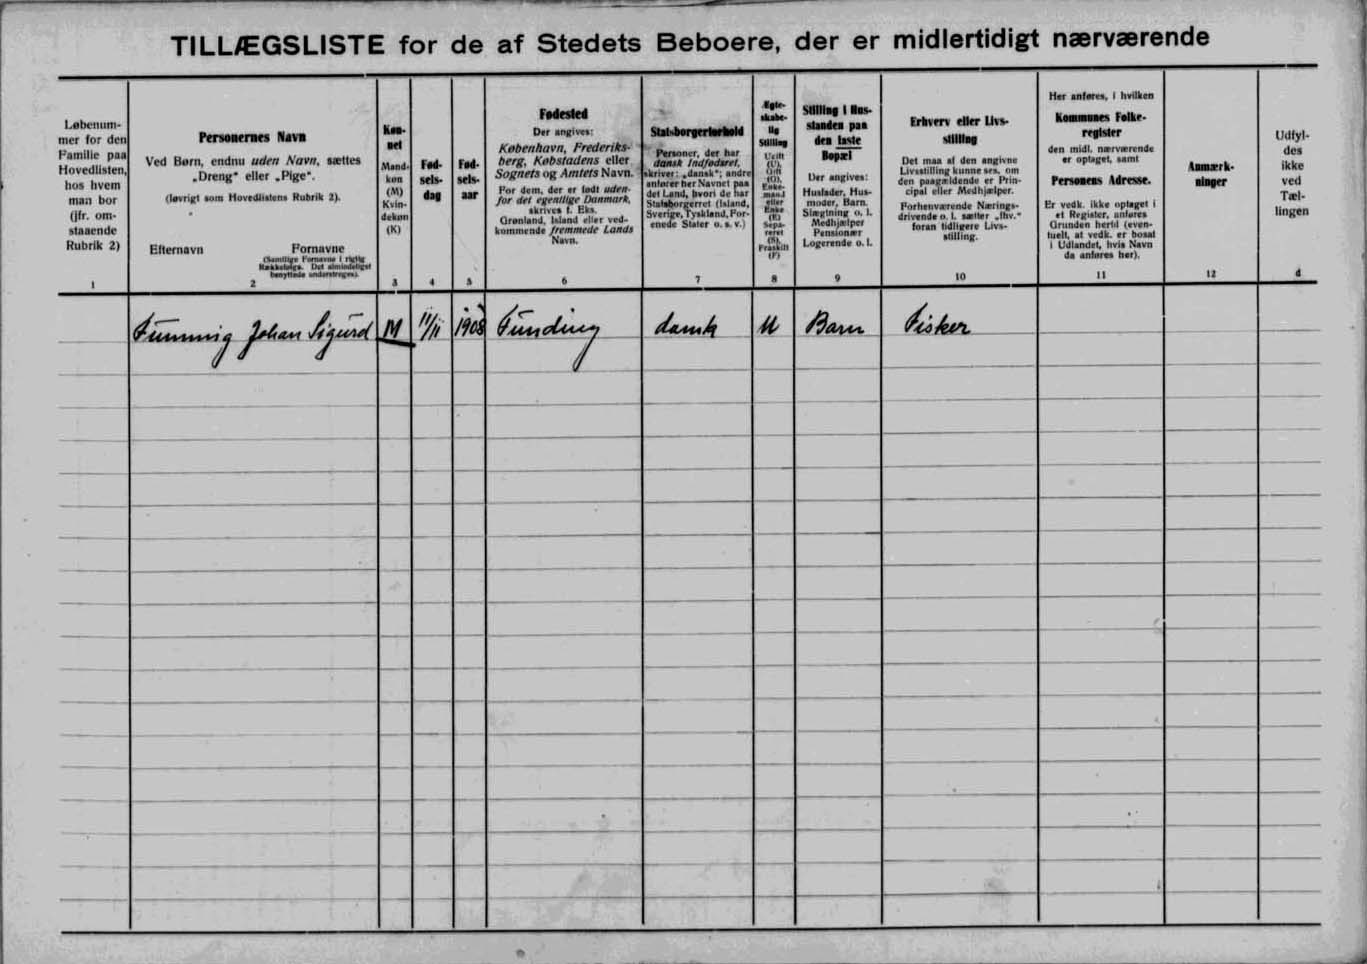 TILLÆGSLISTE for de af Stedets Beboere, der er midlertidigt nærværende
Løbenum-
mer for den
Familie paa
Hovedlisten,
hos hvem
man bor
(jfr. om-
staaende
Rubrik 2)
1
Personernes Navn
Ved Børn, endnu uden Navn, sættes
„Dreng“ eller „Pige“.
(Iøvrigt som Hovedlistens Rubrik 2).
Efternavn Fornavne
(Samtlige Fornavne i rigtig
Rækkefølge. Det almindeligst
benyttede understreges).
2
Køn-
net
Mand-
køn
(M)
Kvin-
dekøn
(K)
3
Fød-
sels-
dag
4
Fød-
sels-
aar
5
Fødested
Der angives:
København, Frederiks-
berg, Købstadens eller
Sognets og Amtets Navn.
For dem, der er født uden-
for det egentlige Danmark,
skrives f. Eks.
Grønland, Island eller ved-
kommende fremmede Lands
Navn.
6
Statsborgerforhold
Personer, der har
dansk Indfødsret,
skriver: „dansk“; andre
anfører her Navnet paa
det Land, hvori de har
Statsborgerret (Island,
Sverige, Tyskland, For-
enede Stater o. s. v.)
7
Ægte-
skabe-
lig
Stilling
Ugift
(U),
Gift
(G),
Enke-
mand
eller
Enke
(E)
Sepa-
reret
(S),
Fraskilt
(F)
8
Stilling i Hus-
standen paa
den faste
Bopæl
Der angives:
Husfader, Hus-
moder, Barn,
Slægtning o. l.
Medhjælper
Pensionær
Logerende o. l.
9
Erhverv eller Livs-
stilling
Det maa af den angivne
Livsstilling kunne ses, om
den paagældende er Prin-
cipal eller Medhjælper.
Forhenværende Nærings-
drivende o. l. sætter „fhv.“
foran tidligere Livs-
stilling.
10
Her anføres, i hvilken
Kommunes Folke-
register
den midl. nærværende
er optaget, samt
Personens Adresse.
Er vedk. ikke optaget i
et Register, anføres
Grunden hertil (even-
tuelt, at vedk. er bosat
i Udlandet, hvis Navn
da anføres her).
11
Anmærk-
ninger
12
Udfyl-
des
ikke
ved
Tæl-
lingen
d
Johan Sigurd M 11/11 1908 Funding dansk U Barn Fisker